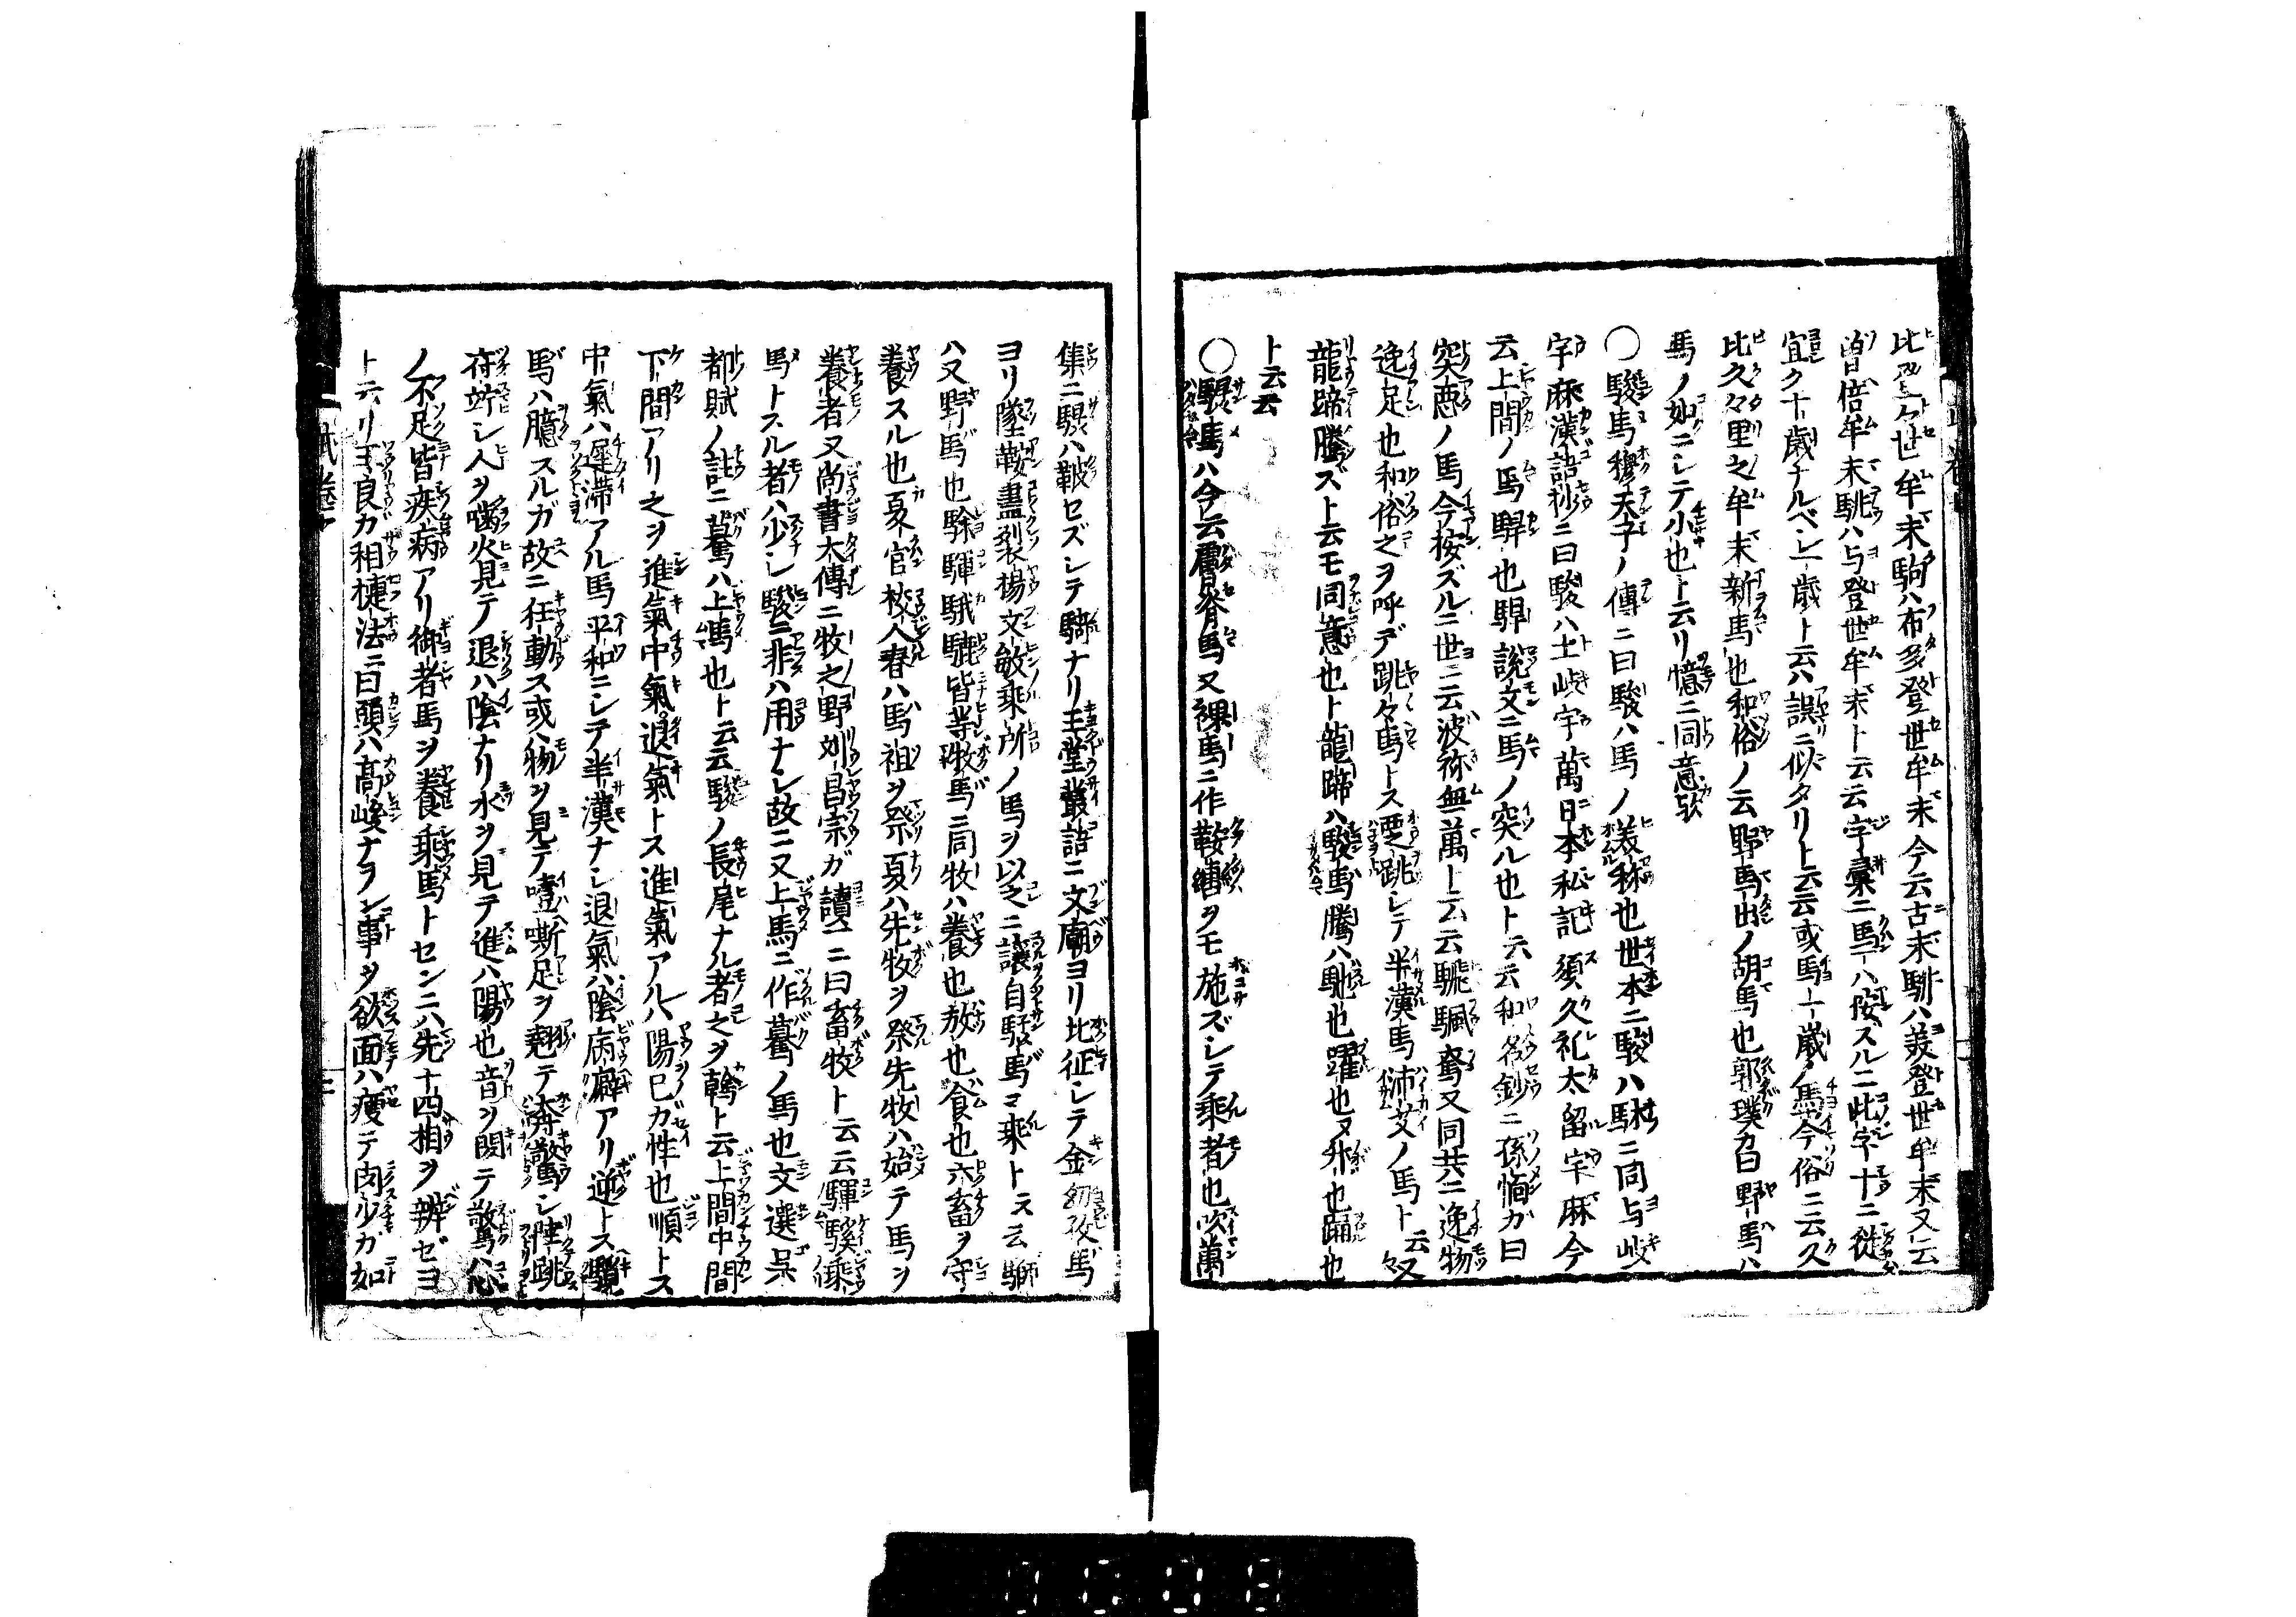 世牟末駒ハ布多登世牟末今云古末駣ハ美登世牟末又云
曽倍牟末駣ハ与登世牟末ト云云字彙ニ馬ハ按スルニ此字十ニ從
宜ク十歳ナルベシ一歳ト云ハ誤ニ似タリト云云或馬一歳ノ馬今俗ニ云久
比久々里之牟末新馬也和俗ノ云野馬出ノ胡馬也郭璞カ曰野馬ハ
馬ノ如ニシテ小也ト云リ憶ニ同意歟
〇駿馬穆天子ノ傳ニ曰駿ハ馬ノ美稱也世本ニ駿ハ駅ニ同与岐
宇麻漢語抄ニ曰駿ハ土岐宇萬日本私記須久礼太留宇麻今
云上間ノ馬駻也駻説文ニ馬ノ突ル也ト云云和名鈔ニ孫愐カ曰
突悪ノ馬今按ズルニ世ニ云波祢無萬ト云云駣颿騖又同共ニ逸物
逸足也和俗之ヲ呼デ跳々馬トス跳シテ半漢馬沛艾ノ馬ト云又
龍蹄騰ズト云モ同意也ト龍蹄ハ駿馬騰ハ馳也躍也又升也踊也
ト云云
〇驏馬ハ今云膚脊馬又裸馬ニ作鞍韉ヲモ施ズシテ乗者也吹萬
集ニ驏ハ鞁セズシテ騎ナリ玉堂叢語ニ文廟ヨリ北征シテ金幼孜馬
ヨリ墜鞍盡裂楊文敏乗所ノ馬ヲ以之ニ讓自驏馬ニ乗トス云
ハ又野馬也駼騨騀騼皆等牧馬ニ同牧ハ養也放也食也六畜ヲ守
養スル也夏官校人春ハ馬祖ヲ祭夏ハ先牧ヲ祭先牧ハ始テ馬ヲ
養者又尚書大傳ニ牧之野刘昌宗ガ讀ニ曰畜牧ト云云騨騱
馬トスル者ハ少シ駿ニ非ハ用ナシ故ニ又上馬ニ作驀ノ馬也文選呉
都賦ノ註ニ驀ハ上馬也ト云云駿ノ長尾ナル者之ヲ騲ト云上間中間
下間アリ之ヲ進氣中氣退氣トス進氣アルハ陽巳ガ性也順トス
中氣ハ遅滞アル馬平和ニシテ半漢ナシ退氣ハ陰病癖アリ逆トス驥
馬ハ臆スルガ故ニ狂動ス或ハ物ヲ見テ噎嘶足ヲ翹テ奔驚シ陸跳
苻竚シ人ヲ噛火見テ退ハ陰ナリ水ヲ見テ進ハ陽也音ヲ聞テ驚ハ心
ノ不足皆疾病アリ御者馬ヲ養乗馬トセンニハ先十四相ヲ辨ゼヨ
ト云リ王良カ相揵法ニ曰頭ハ高峻ナラン事ヲ欲面ハ瘦テ肉少カ如